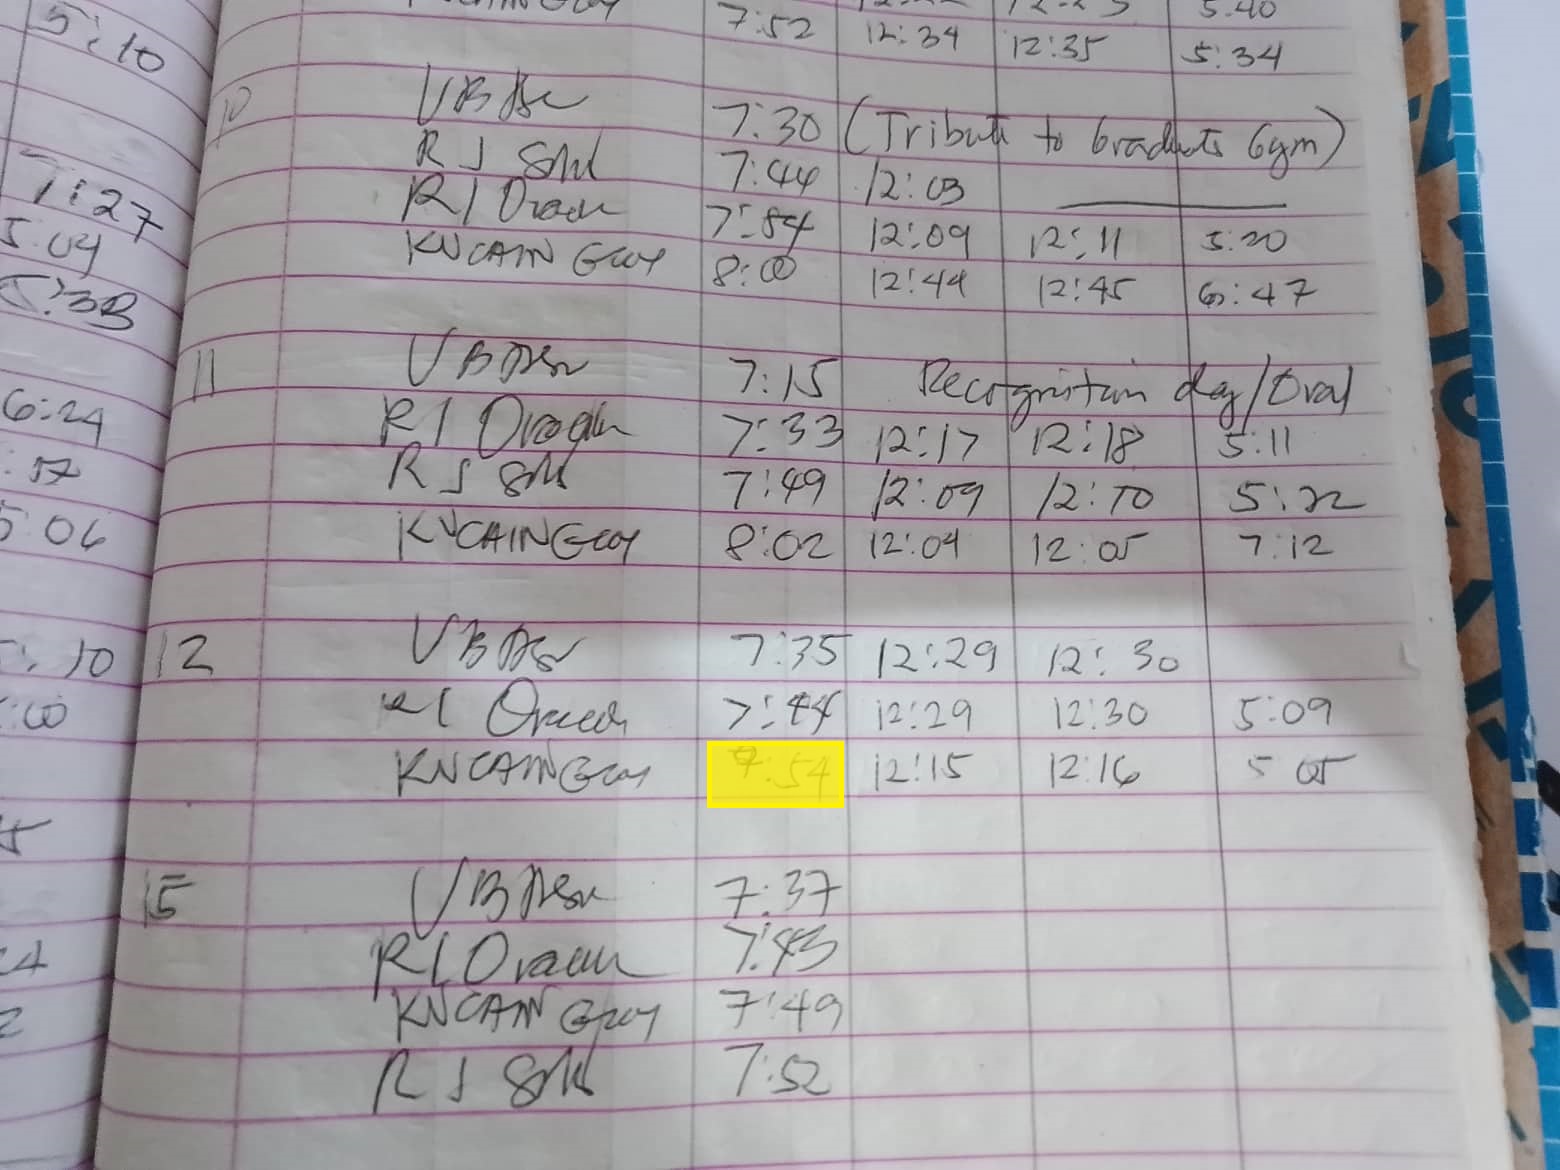 5:10
7:27
5:04
5:38
6:24
:17
5:06
10
:00
7:52 12:34 12:35 5:34
10 VB 7:30 (Tribute to Graduates Gym)
RJ 7:44 12:03
RI 7:54 12:09 12:11 5:20
KNCAINGCOY 8:00 12:44 12:45 6:47
11 VB 7:15 Recognition day/Oval
RI 7:33 12:17 12:18 5:11
RJ 7:49 12:09 12:10 5:22
KNCAINGCOY 8:02 12:04 12:05 7:12
12 VB 7:35 12:29 12:30
RI 7:44 12:29 12:30 5:09
KNCAINGCOY 7:54 12:15 12:16 5 05
15 VB 7:37
RI 7:43
KNCAINGCOY 7:49
RJ 7:52